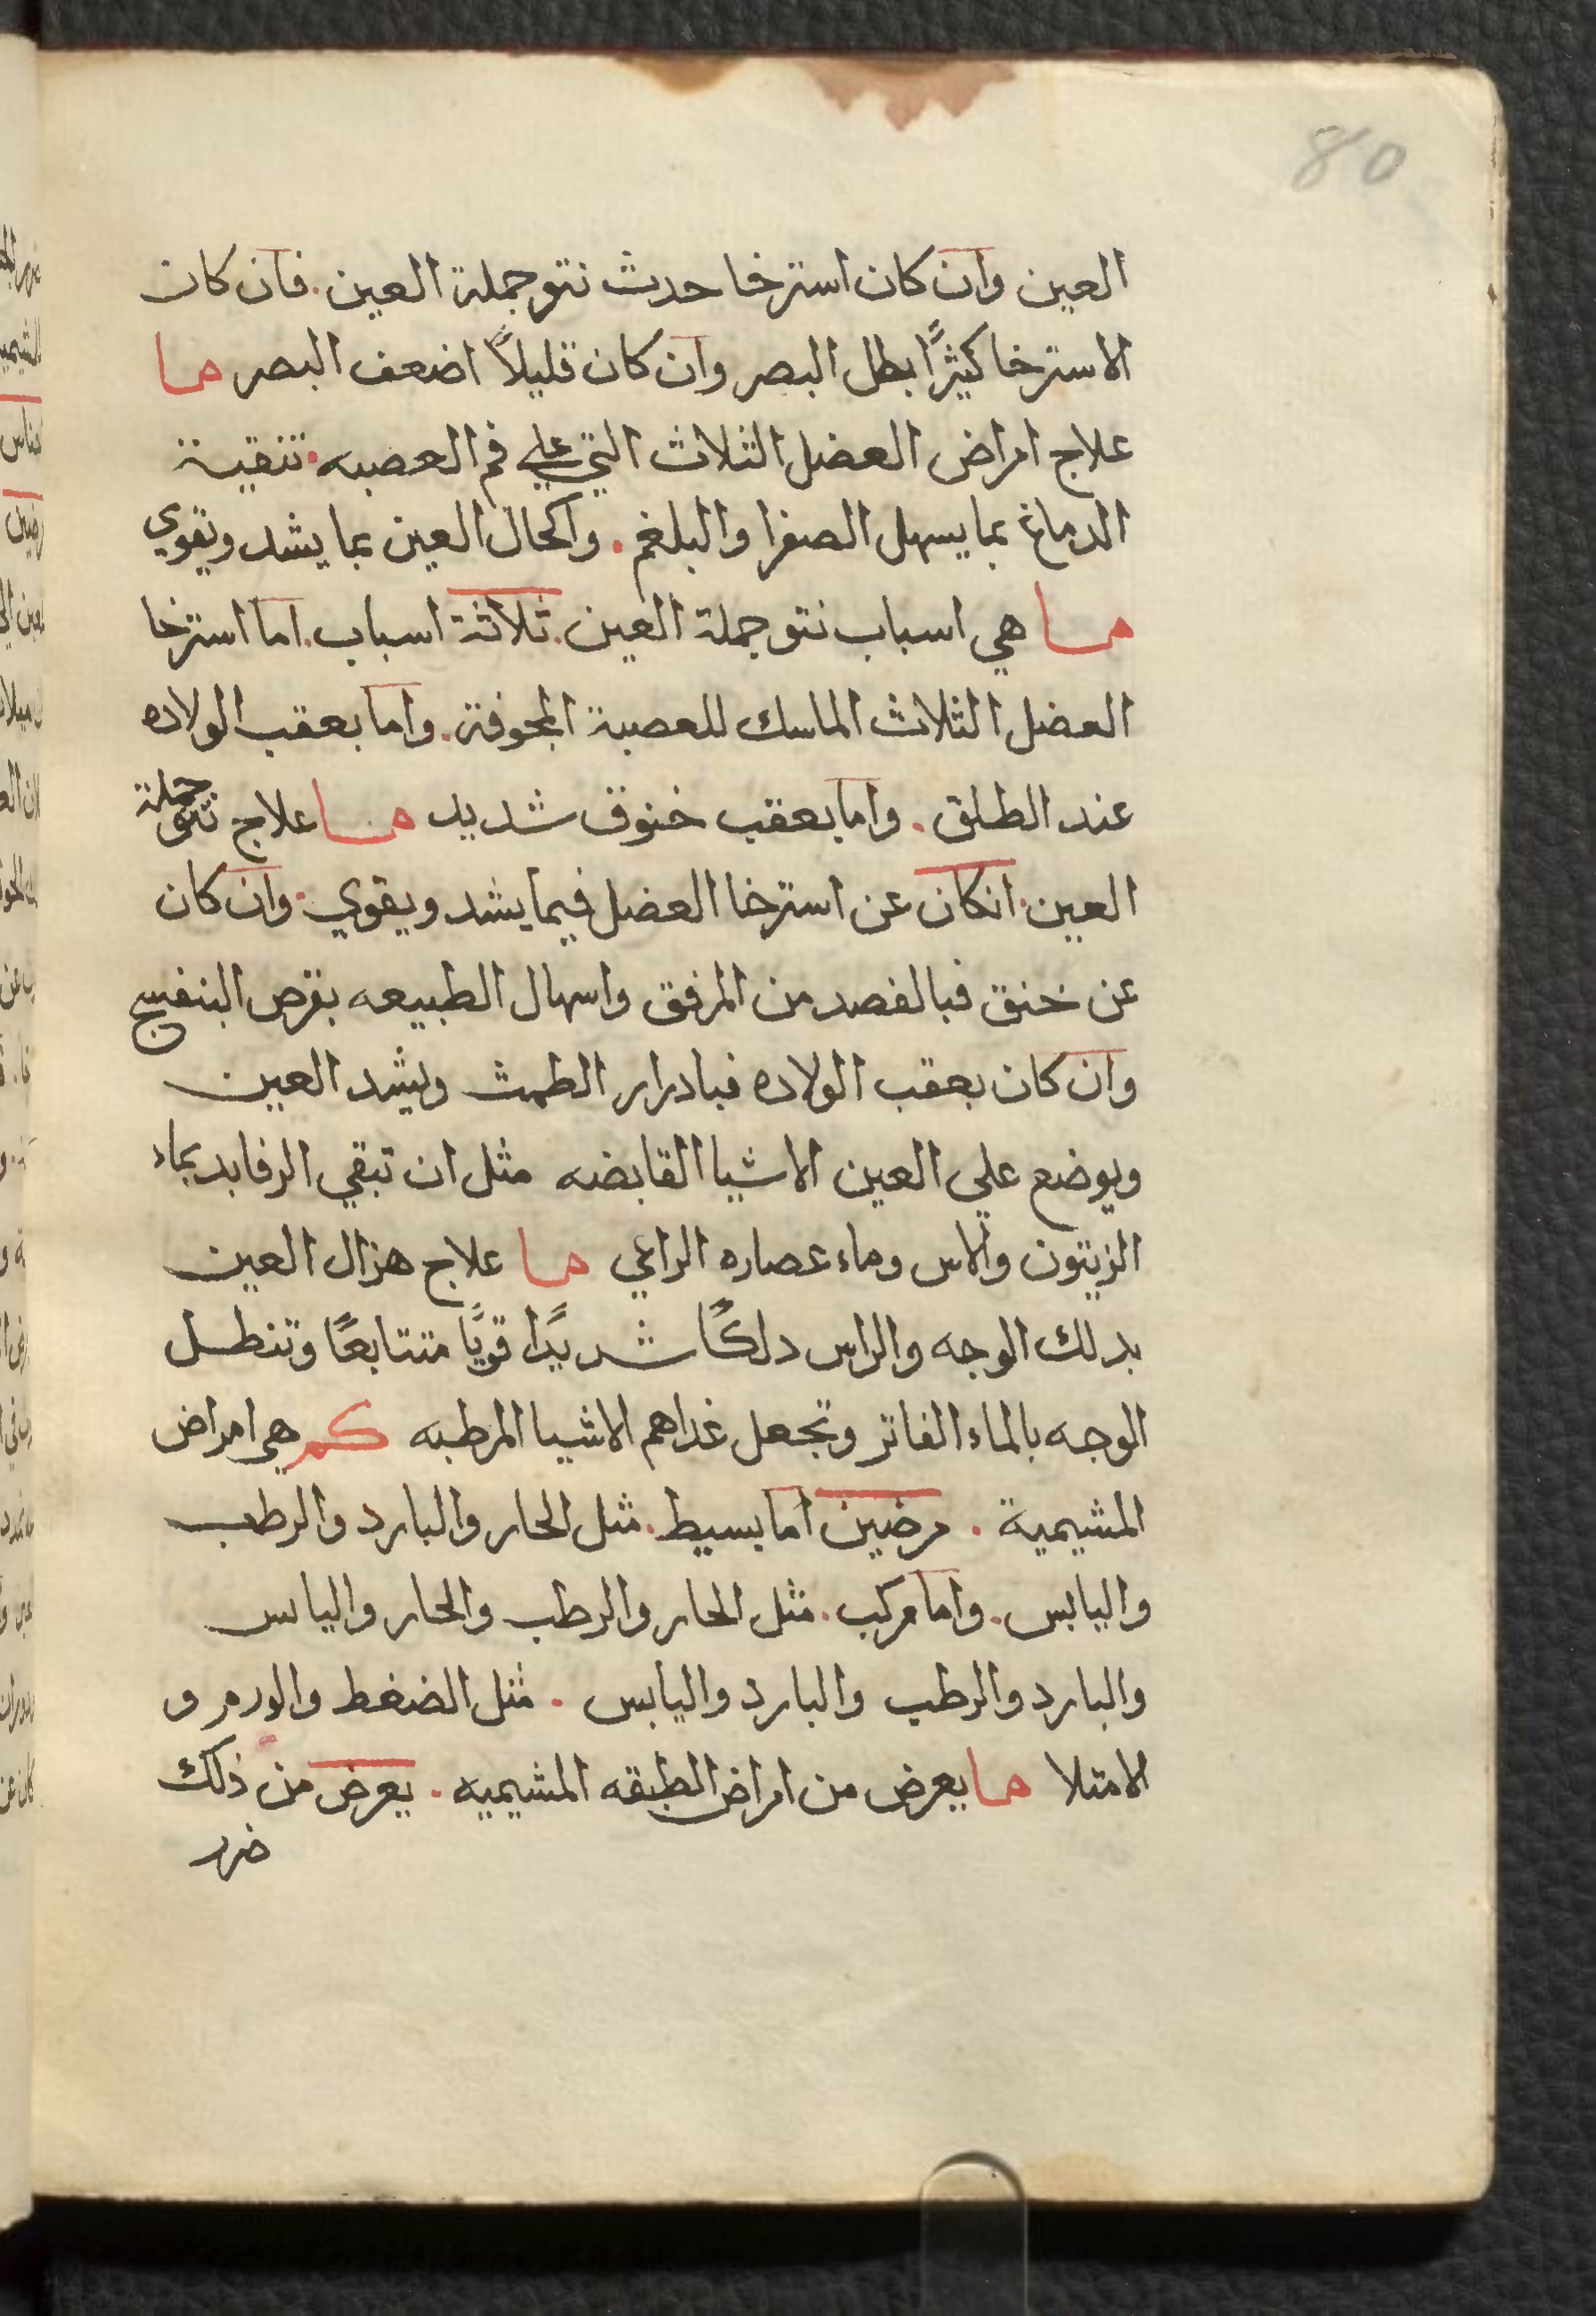 80
العين وان كان استرخا حدث نتو جملة العين. فان كان
الاسترخا كثيرًا بطل البصر وان كان قليلاً اضعف البصر ما
علاج امراض العضل الثلاث التي علي فم العصبه. تنقية
الدماغ بما يسهل الصفرا والبلغم. واكحال العين بما يشد ويقوي
ما هي اسباب نتو جملة العين. ثلاثة اسباب. اما استرخا
العضل الثلاث الماسك للعصبة المجوفة. واما بعقب الولاده
عند الطلق. واما بعقب خنوق شديد ما علاج نتو جملة
العين. انكان عن استرخا العضل فبما يشد ويقوي. وان كان
عن خنق فبالفصد من المرفق واسهال الطبيعه بقرص البنفسج
وان كان بعقب الولاده فبادرار الطمث ويشد العين
ويوضع علي العين الاشيا القابضه مثل ان تبقي الرفايد بماء
الزيتون والاس وماء عصاره الراعي ما علاج هزال العين
بدلك الوجه والراس دلكًا شديدًا قويًا متتابعًا وتنطل
الوجه بالماء الفاتر وتجعل غداهم الاشيا المرطبه كم هي امراض
المشيمية. مرضين اما بسيط. مثل الحار والبارد والرطب
واليابس. واما مركب. مثل الحار والرطب والحار واليابس
والبارد والرطب والبارد واليابس. مثل الضغط والورم و
الامتلا ما يعرض من امراض الطبقه المشيميه. يعرض من ذلك
ضرر